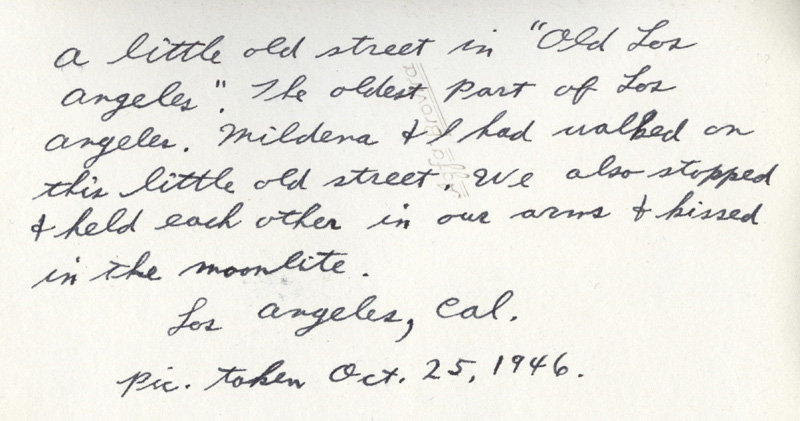 a little old street in "Old Los
Angeles". The oldest part of Los
Angeles. Mildena & I had walked on
this little old street. We also stopped
& held each other in our arms & kissed
in the moonlite.
Los Angeles, Cal.
Pic. taken Oct. 25, 1946.